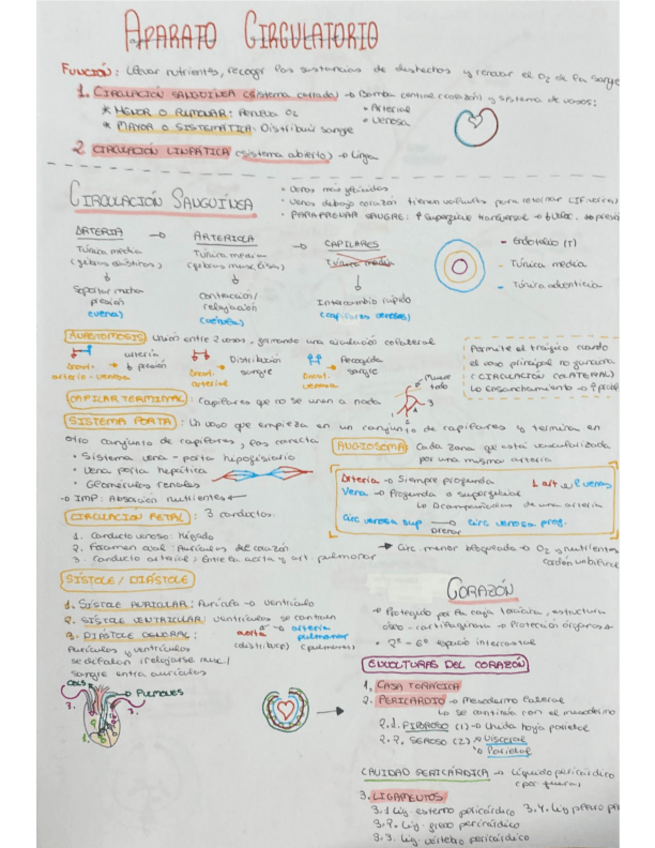 APARATO CIRCULATORIO
FUNCIÓN: Llevar nutrientes, recoger las sustancias de deshechos y renovar el O2 de la sangre
1. CIRCULACIÓN SANGUÍNEA (sistema cerrado) → Bomba central (corazón) y sistema de vasos:
* MENOR O PULMONAR: Renueva O2
• Arterial
* MAYOR O SISTEMÁTICA: Distribuir sangre
• Venosa
2. CIRCULACIÓN LINFÁTICA (sistema abierto) → Linfa
CIRCULACIÓN SANGUÍNEA
• Venas más
• Venas debajo corazón tienen válvulas para retornar
• PARA FRENAR SANGRE: ↑ superficie transversal →
ARTERIA → ARTERIOLA → CAPILARES
Túnica media (fibras elásticas)
Soportar mucha presión
(vena)
Túnica media (fibras musc. lisa)
Contracción/ relajación
(vénula)
Túnica media
Intercambio rápido
(capilares venosos)
- Endotelio (I)
- Túnica media
- Túnica adventicia
ANASTOMOSIS Unión entre 2 vasos, formando una circulación colateral
arterio-venosa
arteria ↓ presión
arterial
Distribución sangre
venosa
Recogida sangre
Permite el tráfico cuando
el vaso principal no funciona
(CIRCULACIÓN COLATERAL)
CAPILAR TERMINAL: Capilares que no se unen a nada
Muere todo
1 2 3
SISTEMA PORTA: Un vaso que empieza en un conjunto de capilares y termina en
otro conjunto de capilares, los conecta
• Sistema vena-porta hipofisiario
• Vena porta hepática
• Glomérulos renales
→ IMP: Absorción nutrientes
ANGIOSOMA: Cada zona que está vascularizada
por una misma arteria
Arteria → Siempre profunda
1 art → 2 venas
Vena → Profunda o superficial
Acompañantes de una arteria
Circ venosa sup → Circ venosa prof.
drenar
CIRCULACIÓN FETAL: 3 conductos:
1. Conducto venoso: Hígado
2. Foramen oval: Aurículas del corazón
3. Conducto arterial: Entre la aorta y art. pulmonar
→ Circ. menor bloqueada → O2 y nutrientes
cordón umbilical
SÍSTOLE / DIÁSTOLE
1. SÍSTOLE AURICULAR: Aurícula → ventrículo
2. SÍSTOLE VENTRICULAR: Ventrículos se contraen
aorta (distribuye)
arteria pulmonar (pulmones)
3. DIÁSTOLE GENERAL:
Aurículas y ventrículos
se dilatan (relajarse musc)
sangre entra aurículas
PULMONES
CORAZÓN
→ Protegido por la caja torácica, estructura
osteo-cartilaginosa → Protección órganos
• 2º-6º espacio intercostal
ENVOLTURAS DEL CORAZÓN
1. CAJA TORÁCICA
2. PERICARDIO → Mesodermo lateral
Se continúa con el mesodermo
2.1. FIBROSO (1) → Unida hoja parietal
2.2. SEROSO (2) → Visceral
→ Parietal
CAVIDAD PERICÁRDICA → Líquido pericárdico
3. LIGAMENTOS
3.1 Lig esterno pericárdico
3.2. Lig. freno pericárdico
3.3. Lig. vértebro pericárdico